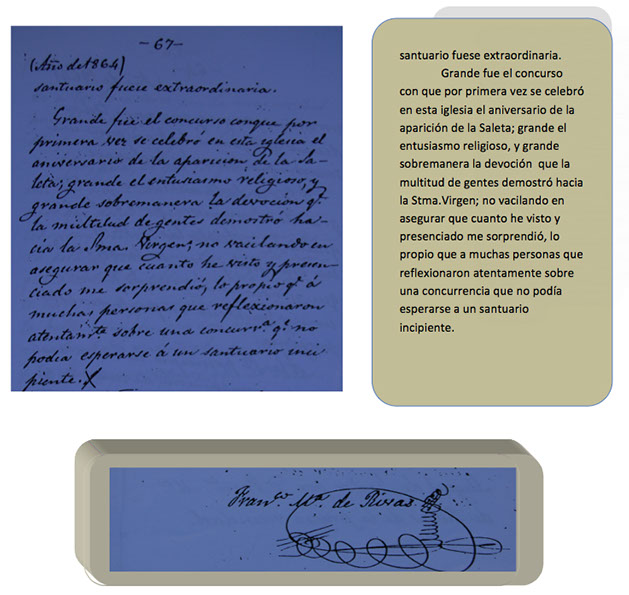 -67-
(Año de 1864)
santuario fuese extraordinaria.
Grande fué el concurso conque por
primera vez se celebró en esta iglesia el
aniversario de la aparicion de la Sa-
leta; grande el entusiasmo religioso, y
grande sobremanera la devoción q.e
la multitud de gentes demostró ha-
cia la Sma. Virgen; no vacilando en
asegurar que cuanto he visto y presen-
ciado me sorprendió, lo propio q.e á
muchas personas que reflexionaron
atentam.te sobre una concurr.a q.e no
podia esperarse á un santuario inci
piente.
santuario fuese extraordinaria.
Grande fue el concurso
con que por primera vez se celebró
en esta iglesia el aniversario de la
aparición de la Saleta; grande el
entusiasmo religioso, y grande
sobremanera la devoción que la
multitud de gentes demostró hacia
la Stma.Virgen; no vacilando en
asegurar que cuanto he visto y
presenciado me sorprendió, lo
propio que a muchas personas que
reflexionaron atentamente sobre
una concurrencia que no podía
esperarse a un santuario
incipiente.
Fran.co M.a de Rivas